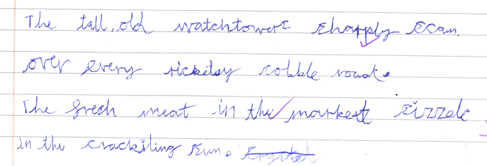 The tall, old watchtowers sharply scan.
over every rickitey cobble road.
The fresh meat in the market sizzels
in the crackiling sun.